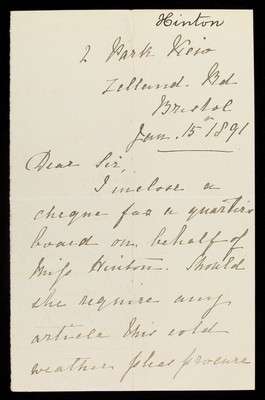 Hinton
2 Park View
Zelland. Rd
Bristol
Jan. 15th 1891
Dear Sir,
I inclose a
cheque for a quarter's
board on behalf of
Miss Hinton. Should
she require any
article this cold
weather pleas procure